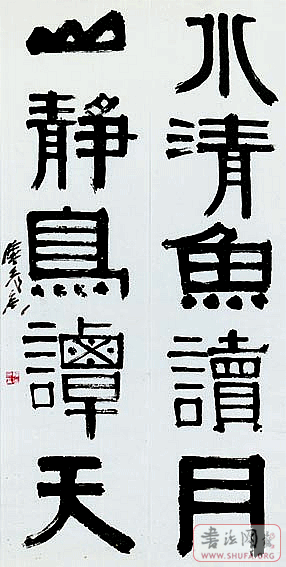 水清魚讀月
山靜鳥譚天
WWW.SHUFA.ORG